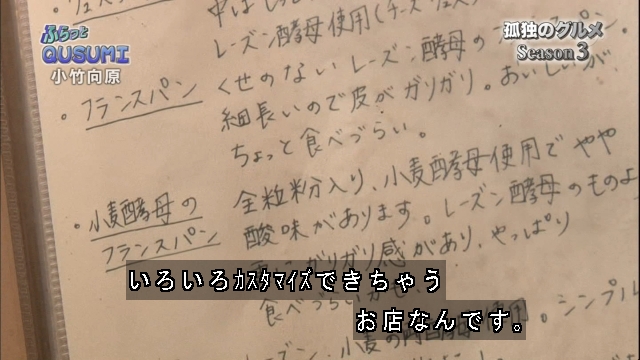 ふらっと
QUSUMI
小竹向原
孤独のグルメ
Season3
中は
レーズン酵母使用(チーズ
・フランスパン くせのないレーズン酵母の
パン。
細長いので皮がガリガリ。おいしいが
ちょっと食べづらい。
・小麦酵母の 全粒粉入り、小麦酵母使用でやや
フランスパン 酸味があります。レーズン酵母のものよ
ガリガリ感があり、やっぱり
食べづらい
。シンプル
レーズン、小麦の
いろいろカスタマイズできちゃう
お店なんです。